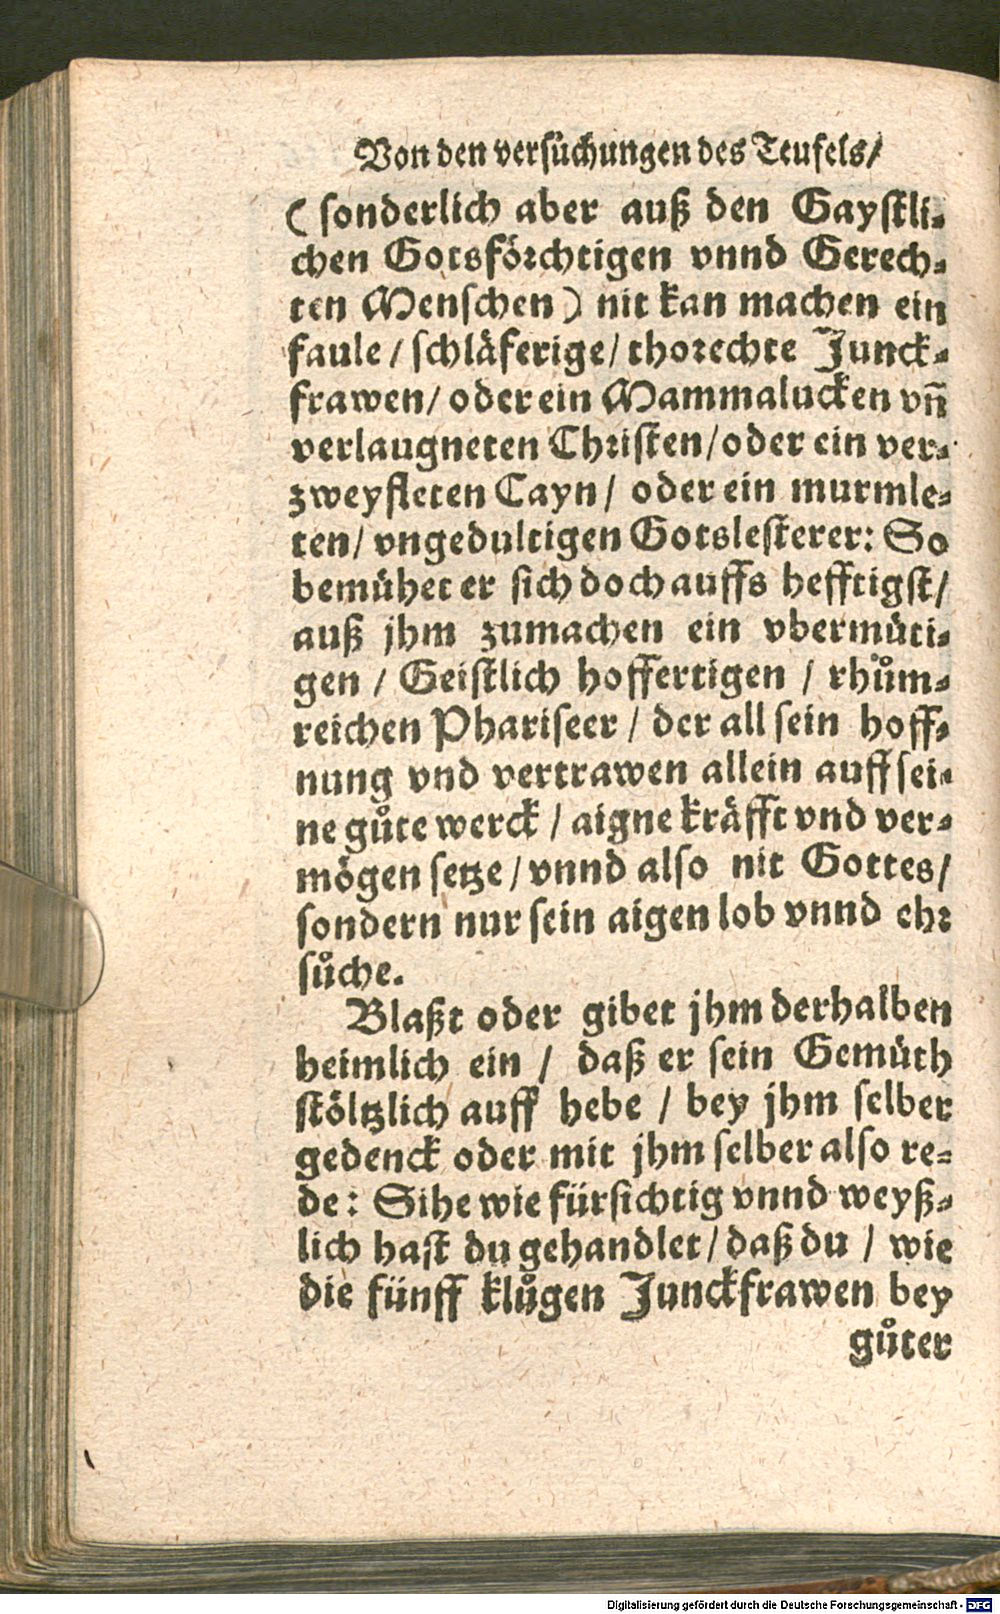 Von den versůchungen des Teufels/
(sonderlich aber auß den Gaystli-
chen Gotsförchtigen vnnd Gerech-
ten Menschen) nit kan machen ein
faule / schläferige/ thorechte Junck-
frawen/ oder ein Mammalucken vñ
verlaugneten Christen/oder ein ver-
zweyfleten Cayn/ oder ein murmle-
ten/ vngedultigen Gotslesterer: So
bemühet er sich doch auffs hefftigst/
auß jhm zumachen ein vbermüti-
gen / Geistlich hoffertigen / rhům-
reichen Phariseer / der all sein hoff-
nung vnd vertrawen allein auff sei-
ne gůte werck / aigne kräfft vnd ver-
mögen setze/ vnnd also nit Gottes/
sondern nur sein aigen lob vnnd ehr
sůche.
Blaßt oder gibet jhm derhalben
heimlich ein / daß er sein Gemüth
stöltzlich auff hebe / bey jhm selber
gedenck oder mit jhm selber also re-
de: Sihe wie fürsichtig vnnd weyß-
lich hast du gehandlet/ daß du / wie
die fünff klůgen Junckfrawen bey
gůter
Digitalisierung gefördert durch die Deutsche Forschungsgemeinschaft - DFG